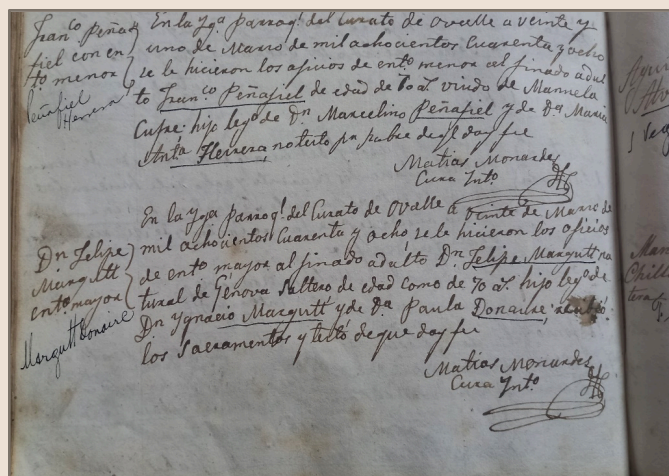 Franco Peñafiel con en
tto menor
Peñafiel
Herrera
En la Yga Parroql del Curato de Ovalle a veinte y
uno de Marzo de mil achocientos Cuarenta y ocho
se le hicieron los oficios de ento menor al finado adul
to Franco Peñafiel de edad de 70 as viudo de Manuela
hijo lego de Dn Marcelino Peñafiel y de Da Maria
Anta Herrera, no testo pr pobre de ql doy fee
Matias Monardes
Cura Into
Dn Felipe
Margutt
ento mayor
Margutt Donaire
En la Yga Parroql del Curato de Ovalle a veinte de Marzo de
mil achocientos Cuarenta y ocho, se le hicieron los oficios
de ento mayor al finado adulto Dn Felipe Margutt na
tural de Genova Saltero de edad como de 70 as hijo lego de
Dn Ygnacio Margutt y de Da Paula Donaire;
los Sacramentos y testó de que doy fee
Matias Monardes
Cura Into